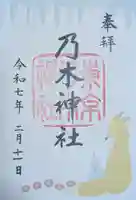 奉拝
乃木神社
令和七年 二月十一日